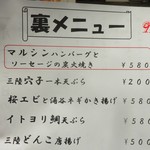 裏メニュー
マルシンハンバーグと
ソーセージの炭火焼き ¥580
三陸穴子一本天ぷら ¥200
桜エビと涌谷ネギかき揚げ ¥580
イトヨリ鯛天ぷら ¥580
三陸どんこ唐揚げ ¥500